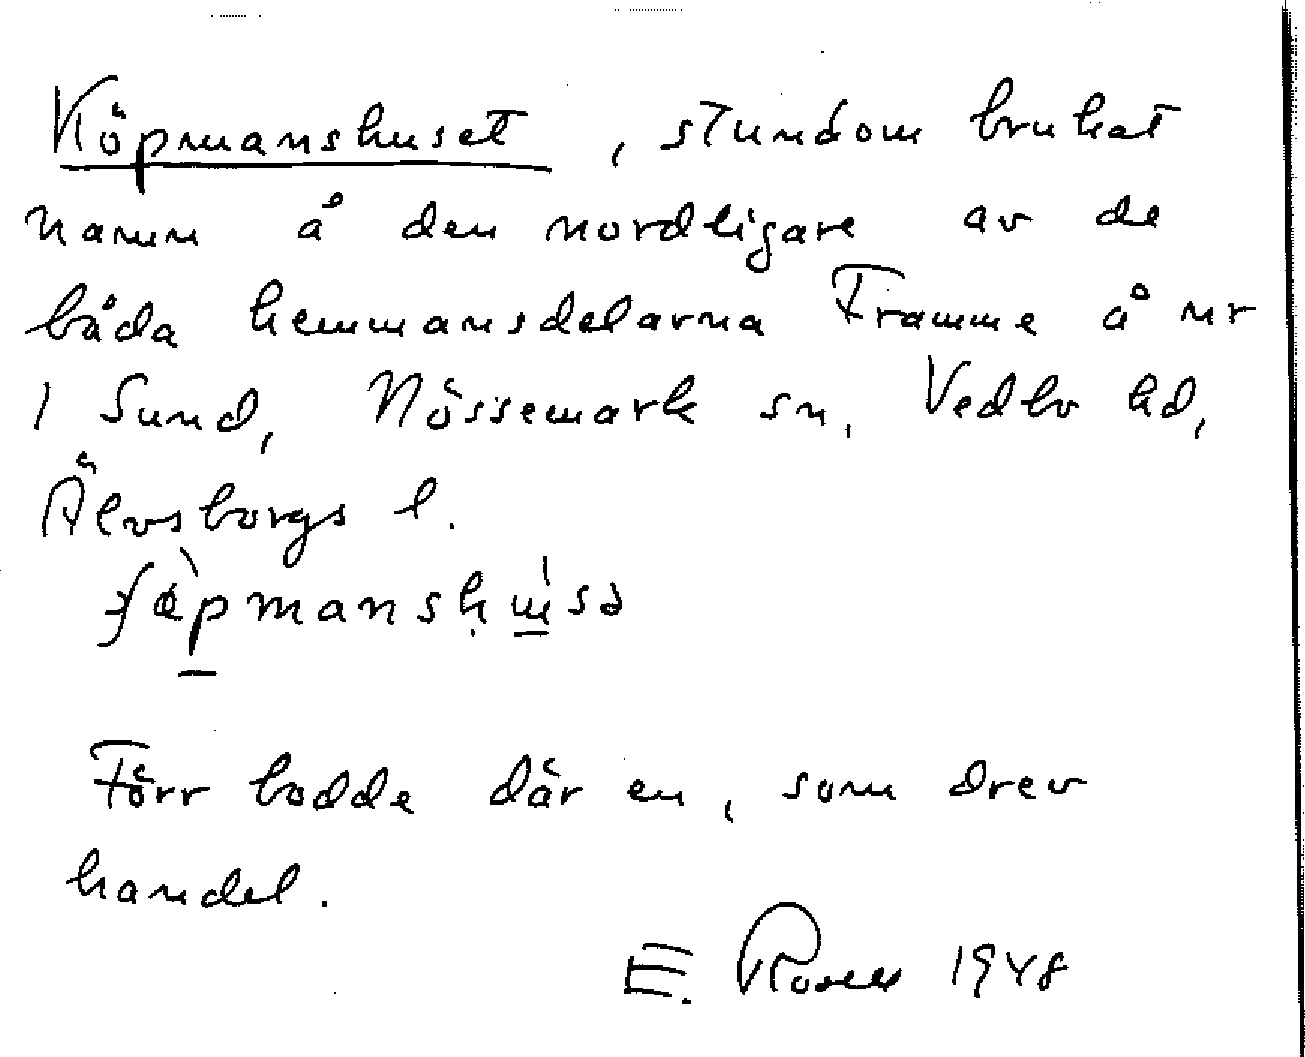 Köpmanshuset, stundom brukat
namn å den nordligare av de
båda hemmansdelarna Framme å nr
1 Sund, Nössemark sn, Vedbo hd,
Älvsborgs l.
Förr bodde där en, som drev
handel.
E. Rosell 1948